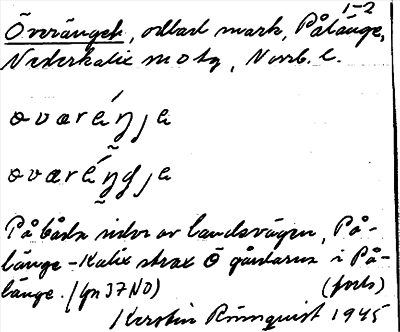 1-2
Överänget, odlad mark, Pålänge,
Nederkalix sn o tg, Norrb. l.
øværéŋje
øværéŋgje
På båda sidor av landsvägen, På-
länge - Kalix strax Ö gårdarna i På-
länge. (gn 37 NO) (forts)
Kerstin Rönnquist 1945